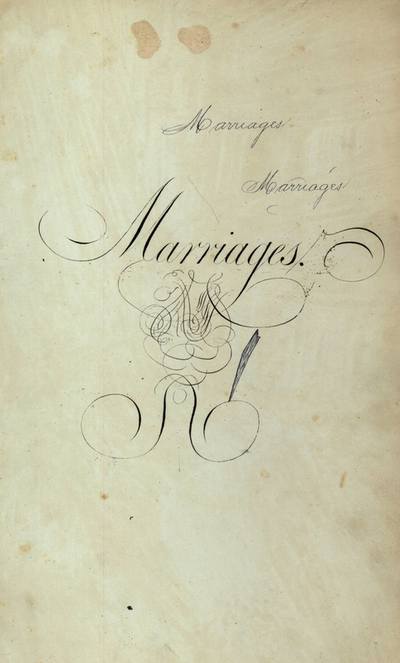 Marriages.
Marriages
Marriages.